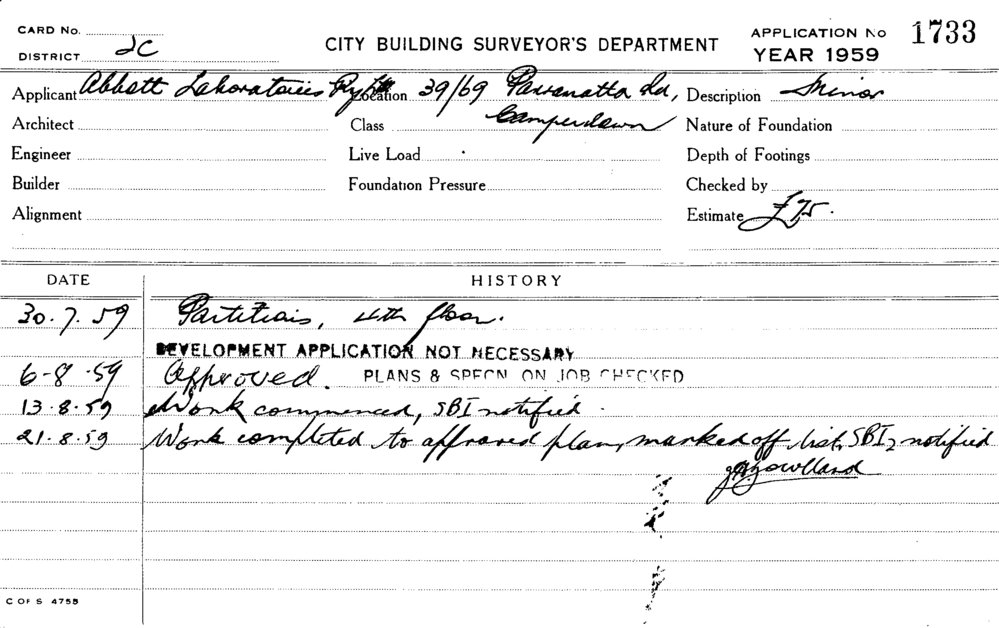 CARD No.
DISTRICT 2C
CITY BUILDING SURVEYOR'S DEPARTMENT
APPLICATION No 1733
YEAR 1959
Applicant Abbott Laboratories Pty Location 39/69 Parramatta Rd, Description Minor
Architect Class Camperdown Nature of Foundation
Engineer Live Load Depth of Footings
Builder Foundation Pressure Checked by
Alignment Estimate £75.
DATE HISTORY
30.7.59 Partitions, 4th floor.
DEVELOPMENT APPLICATION NOT NECESSARY
6-8.59 Approved. PLANS & SPECN. ON JOB CHECKED
13.8.59 Work commenced, SBI notified.
21.8.59 Work completed to approved plan, marked off list, SBI, notified
C OF S 4755